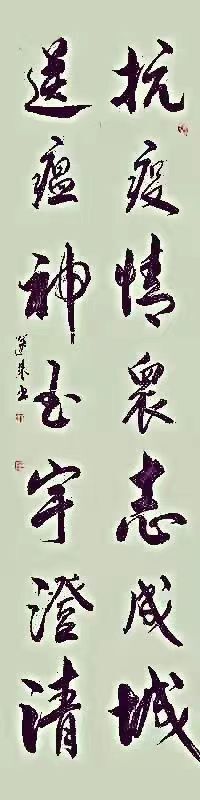 抗疫情衆志成城
送瘟神玉宇澄清